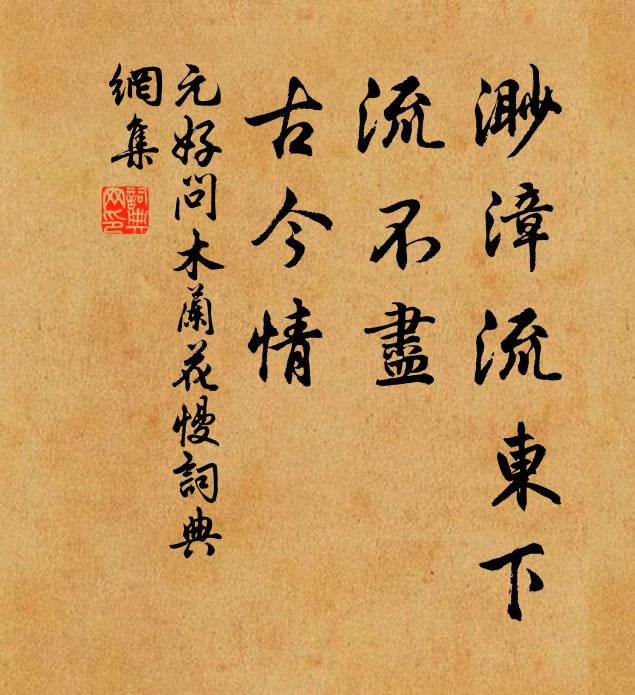 渺漳流東下
流不盡
古今情
元好問木蘭花慢詞典
網集
詞典網印